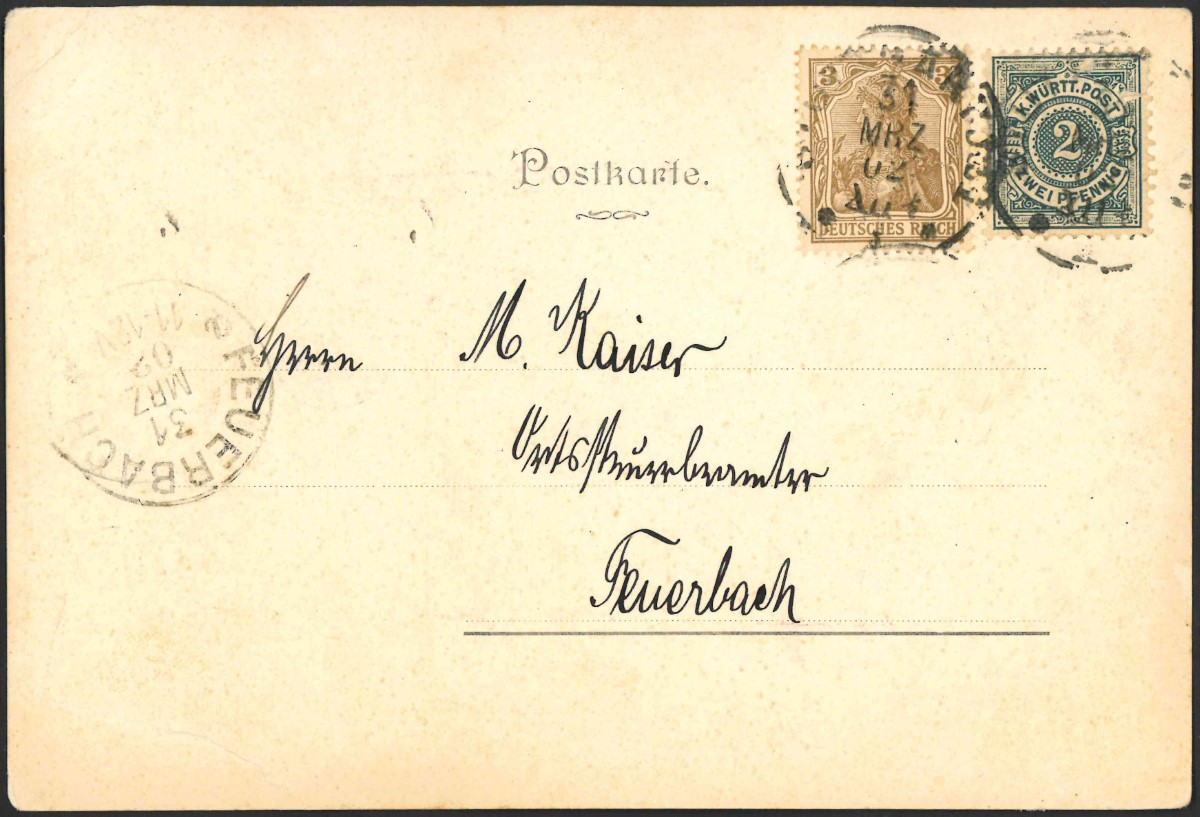 3 3
DEUTSCHES REICH
K. WÜRTT. POST
2
ZWEI PFENNIG
31
MRZ
02
Postkarte.
Herrn M. Kaiser
Ortssteuerbeamter
Feuerbach
FEUERBACH
31
MRZ
02
11-12V